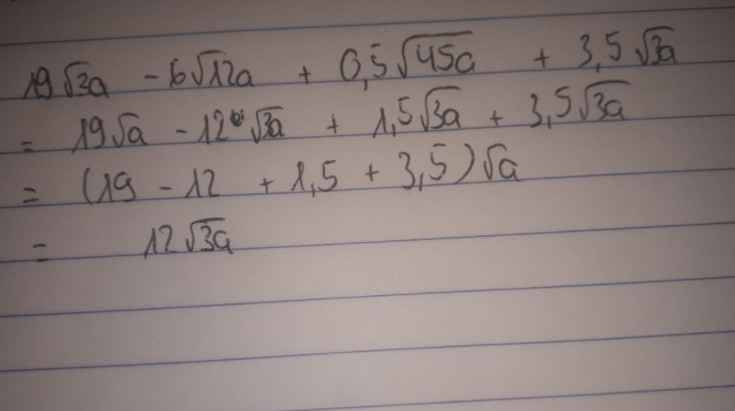 19√3a - 6√12a + 0,5√45a + 3,5√3a
= 19√a - 12√3a + 1,5√3a + 3,5√3a
= (19 - 12 + 1,5 + 3,5)√a
= 12√3a